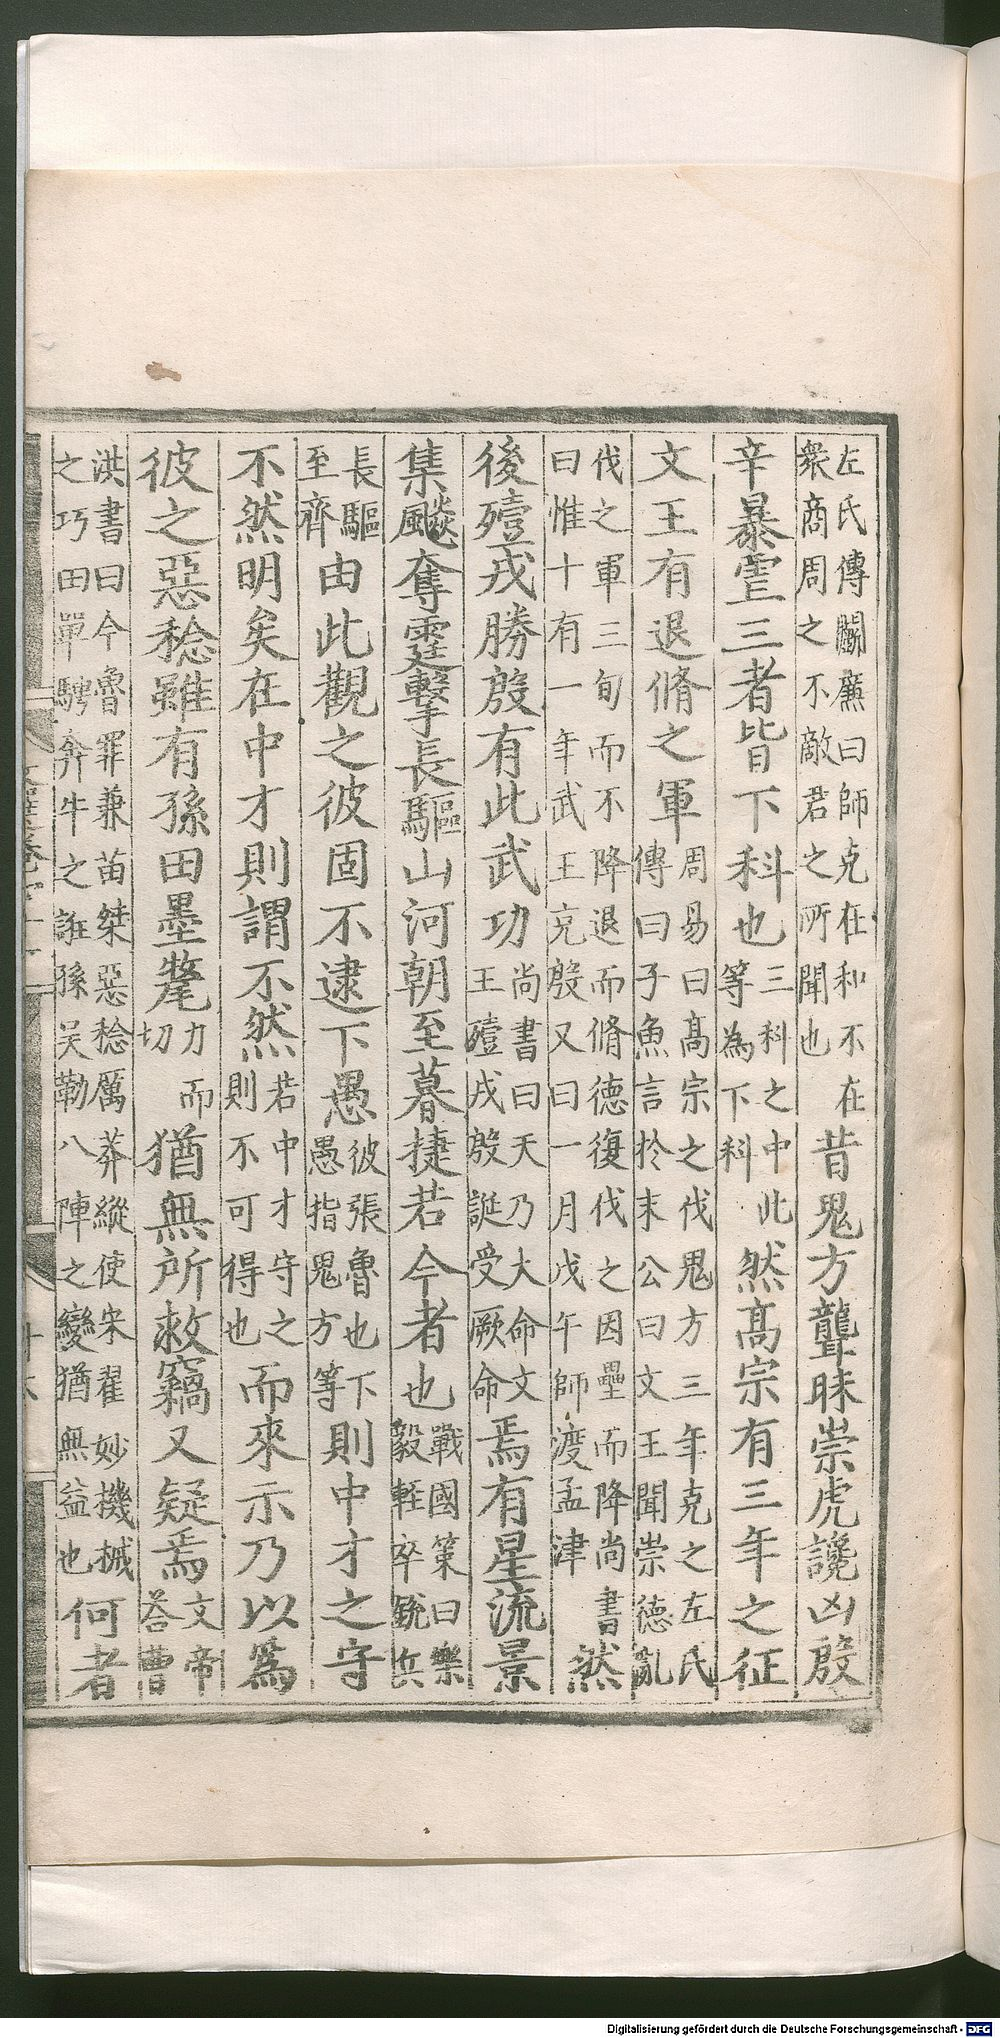 左氏傳鬬廉曰師克在和不在
衆商周之不敵君之所聞也
昔鬼方聾昧崇虎讒凶殷
辛暴虐三者皆下科也
三科之中此
等為下科
然髙宗有三年之征
文王有退脩之軍
周易曰髙宗之伐鬼方三年克之左氏
傳曰子魚言於宋公曰文王聞崇德亂
伐之軍三旬而不降退而脩德復伐之因壘而降尚書
曰惟十有一年武王克殷又曰一月戊午師渡孟津
然
後殪戎勝殷有此武功
尚書曰天乃大命文
王殪戎殷誕受厥命
焉有星流景
集飈奪霆擊長驅山河朝至暮捷若今者也
戰國策曰樂
毅輕卒銳兵
長驅
至齊
由此觀之彼固不逮下愚
彼張魯也下
愚指鬼方等
則中才之守
不然明矣在中才則謂不然
若中才守之
則不可得也
而來示乃以為
彼之惡稔雖有孫田墨氂
力而
切
猶無所救竊又疑焉
文帝
荅曹
洪書曰今魯罪兼苗桀惡稔厲莽縱使宋翟妙機械
之巧田單騁奔牛之誑孫吳勒八陣之變猶無益也
何者
Digitalisierung gefördert durch die Deutsche Forschungsgemeinschaft - DFG